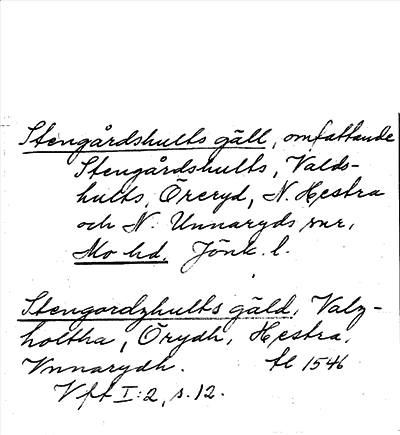 Stengårdshults gäll, omfattande
Stengårdshults, Valds-
hults, Öreryd, N. Hestra
och N. Unnaryds snr,
Mo hd. Jönk. l.
Stengordzhults gäld, Valz-
holtha, Örydh, Hestra,
Vnnarydh. fl 1546
Vft I:2, s. 12.